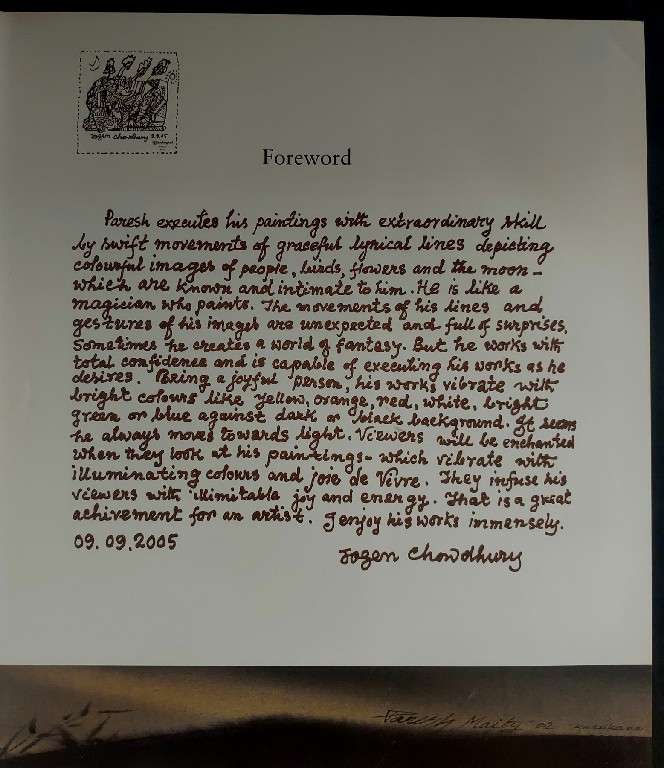 Jogen Chowdhury 9.9.05
Foreword
Paresh executes his paintings with extraordinary skill
by swift movements of graceful lyrical lines depicting
colourful images of people, birds, flowers and the moon –
which are known and intimate to him. He is like a
magician who paints. The movements of his lines and
gestures of his images are unexpected and full of surprises.
Sometimes he creates a world of fantasy. But he works with
total confidence and is capable of executing his works as he
desires. Being a joyful person, his works vibrate with
bright colours like yellow, orange, red, white, bright
green or blue against dark or black background. It seems
he always moves towards light. Viewers will be enchanted
when they look at his paintings – which vibrate with
illuminating colours and joie de Vivre. They infuse his
viewers with illimitable joy and energy. That is a great
achivement for an artist. I enjoy his works immensely.
09.09.2005
Jogen Chowdhury
Paresh Maity 02